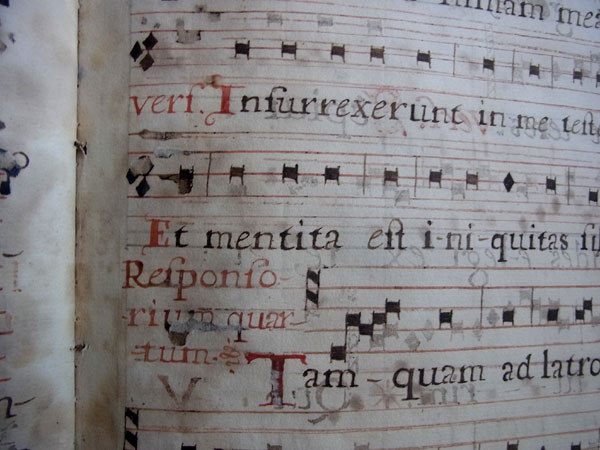 nimam mea
verſ. Inſurrexerunt in me teſt
Et mentita eſt i-ni-quitas
Reſponſo-
rium quar-
tum.
Tam-quam ad latro